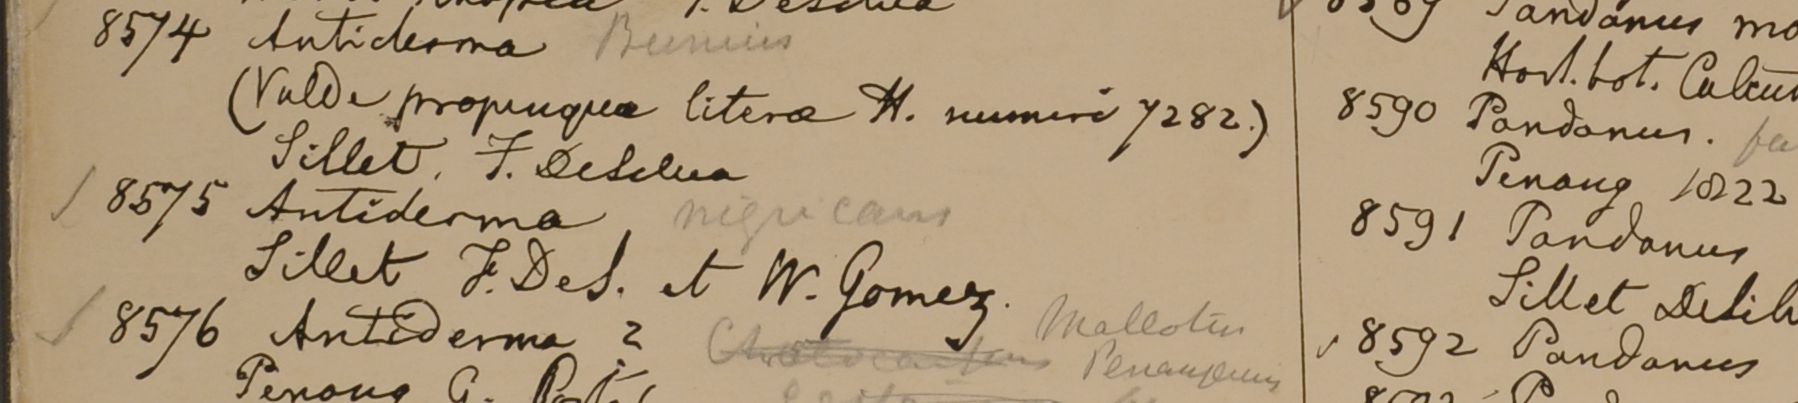 8574 Antidesma Bunius
(Valde propinqua literæ H. numeri 7282.)
Sillet. F. DeSilva
8575 Antidesma nigricans
Sillet F. DeS. et W. Gomez.
8576 Antidesma ? Mallotus
Penangensis
Penang G. Porter
Pandanus
Hort. bot. Calcut
8590 Pandanus.
Penang 1822
8591 Pandanus
Sillet DeSil
8592 Pandanus